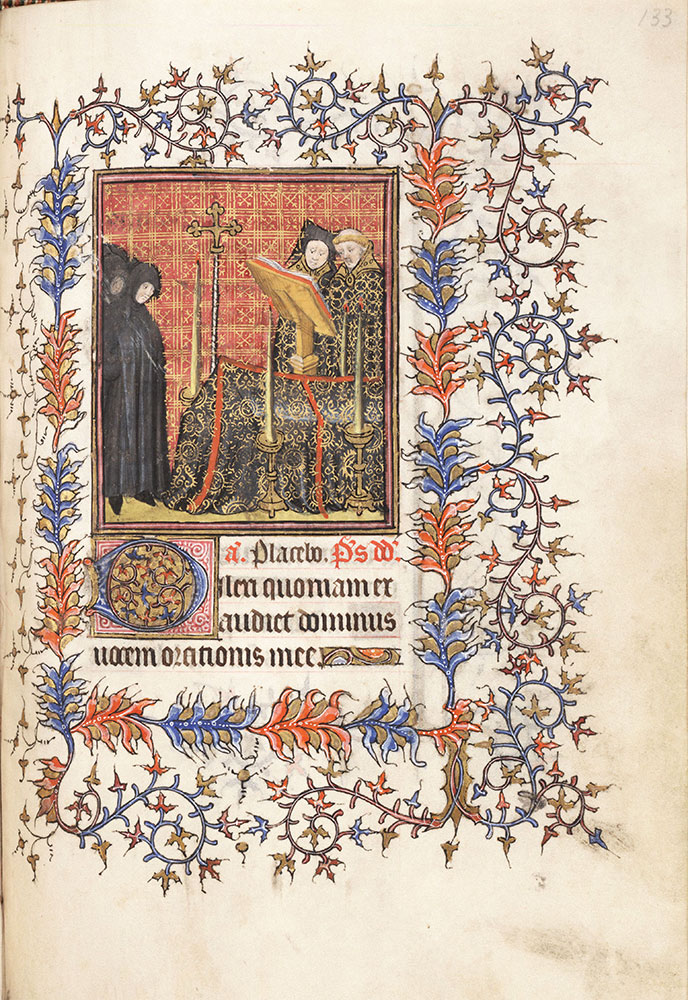 133
a. Placebo. ps dd.
Dilexi quoniam ex
audiet dominus
uocem orationis mee.